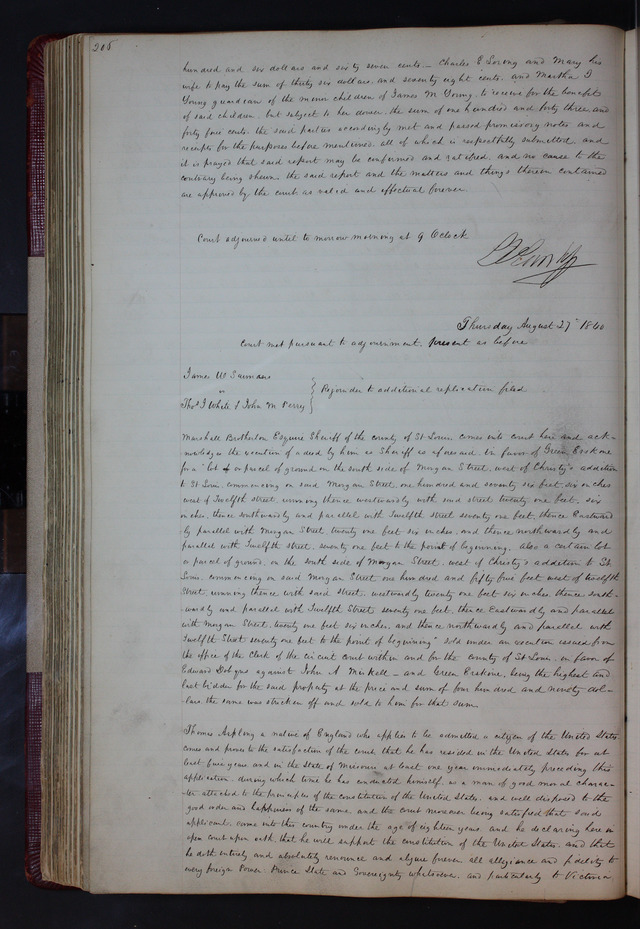 208
hundred and six dollars and sixty seven cents. – Charles E Sorong and Mary his
wife to pay the sum of thirty six dollars and seventy eight cents. and Martha I
Young guardian of the minor children of James M Young, to receive for the benefit
of said children, but subject to her dower, the sum of one hundred and forty three and
forty four cents. the said parties accordingly met and passed promissory notes and
receipts for the purposes before mentioned all of which is respectfully submitted, and
it is prayed that said report may be confirmed and ratified, and no cause to the
contrary being shewn the said report and the matters and things therein contained
are approved by the court as valid and effectual forever.
Court adjourned until to morrow morning at 9 OClock
Thursday August 27th 1840
Court met pursuant to adjournment. present as before
James W Saunders
vs
Thos J White & John M Perry
} Rejoinder to additional replication filed
Marshall Brotherton Esquire Sheriff of the county of St Louis comes into court here and ack-
nowledges the execution of a deed by him as Sheriff as aforesaid. In favor of Green Erskine
for a "lot or parcel of ground on the south side of Morgan Street, west of Christy's addition
to St Louis, commencing on said Morgan Street, one hundred and seventy six feet, six inches
west of Twelfth street, running thence westwardly with said street twenty one feet, six
inches, thence southwardly and parallel with Twelfth street seventy one feet, thence Eastward
ly parallel with Morgan Street, twenty one feet six inches, and thence northwardly and
parallel with Twelfth street, seventy one feet to the point of beginning, also a certain lot
or parcel of ground, on the south side of Morgan Street, west of Christy's addition to St
Louis, commencing on said Morgan Street one hundred and fifty five feet west of twelfth
Street, running thence with said street, westwardly twenty one feet six inches thence south-
wardly and parallel with Twelfth Street seventy one feet, thence Eastwardly and parallel
with Morgan Street, twenty one feet six inches, and thence northwardly and parallel with
Twelfth Street seventy one feet to the point of beginning" sold under an execution issued from
the office of the Clerk of the circuit court within and for the county of St Louis, in favor of
Edward Dobyns against John A Miskell – and Green Erskine, being the highest and
last bidder for the said property at the price and sum of four hundred and ninety dol-
lars the same was stricken off and sold to him for that sum.
Thomas a native of England who applies to be admitted a citizen of the United States
comes and proves to the satisfaction of the court that he has resided in the United States for at
least five years and in the State of Missouri at least one year immediately preceding this
application, during which time he has conducted himself, as a man of good moral charac-
ter attached to the principles of the constitution of the United States, and well disposed to the
good order and happiness of the same and the court moreover being satisfied that said
applicant, came into this country under the age of eighteen years, and he declaring here in
open court upon oath, that he will support the constitution of the United States, and that
he doth entirely and absolutely renounce and abjure forever all allegiance and fidelity to
every foreign Power, Prince State and Sovereignty whatsoever, and particularly to Victoria